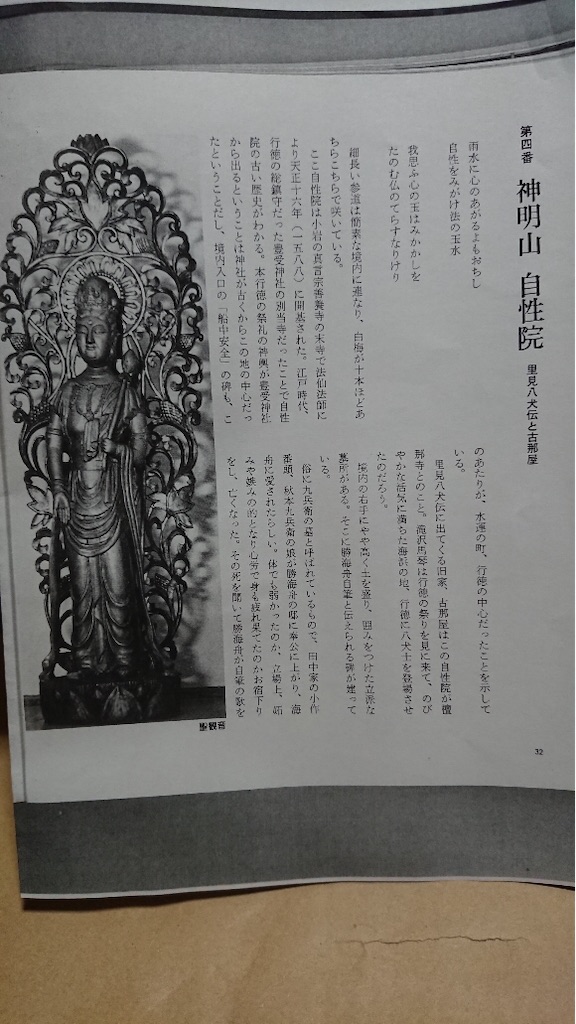 第四番 神明山 自性院 里見八犬伝と古那屋
雨水に心のあがるまもおちし
自性をみがけ法の玉水
我思ふ心の玉はみかかしを
たのむ仏のてらすなりけり
細長い参道は簡素な境内に連なり、白梅が十本ほどあ
ちらこちらで咲いている。
ここ自性院は小岩の真言宗善養寺の末寺で法仙法師に
より天正十六年(一五八八)に開基された。江戸時代、
行徳の総鎮守だった豊受神社の別当寺だったことで自性
院の古い歴史がわかる。本行徳の祭礼の神輿が豊受神社
から出るということは神社が古くからこの地の中心だっ
たということだし、境内入口の「船中安全」の碑も、こ
のあたりが、水運の町、行徳の中心だったことを示して
いる。
里見八犬伝に出てくる旧家、古那屋はこの自性院が檀
那寺とのこと。滝沢馬琴は行徳の祭りを見に来て、のび
やかな活気に満ちた海浜の地、行徳に八犬士を登場させ
たのだろう。
境内の右手にやや高く土を盛り、囲みをつけた立派な
墓所がある。そこに勝海舟自筆と伝えられる碑が建って
いる。
俗に九兵衛の墓と呼ばれているもので、田中家の小作
番頭、秋本九兵衛の娘が勝海舟の邸に奉公に上がり、海
舟に愛されたらしい。体でも弱かったのか、立場上、妬
みや嫉みの的となり心労で身も疲れ果てたのかお宿下り
をし、亡くなった。その死を聞いて勝海舟が自筆の歌を
聖観音
32